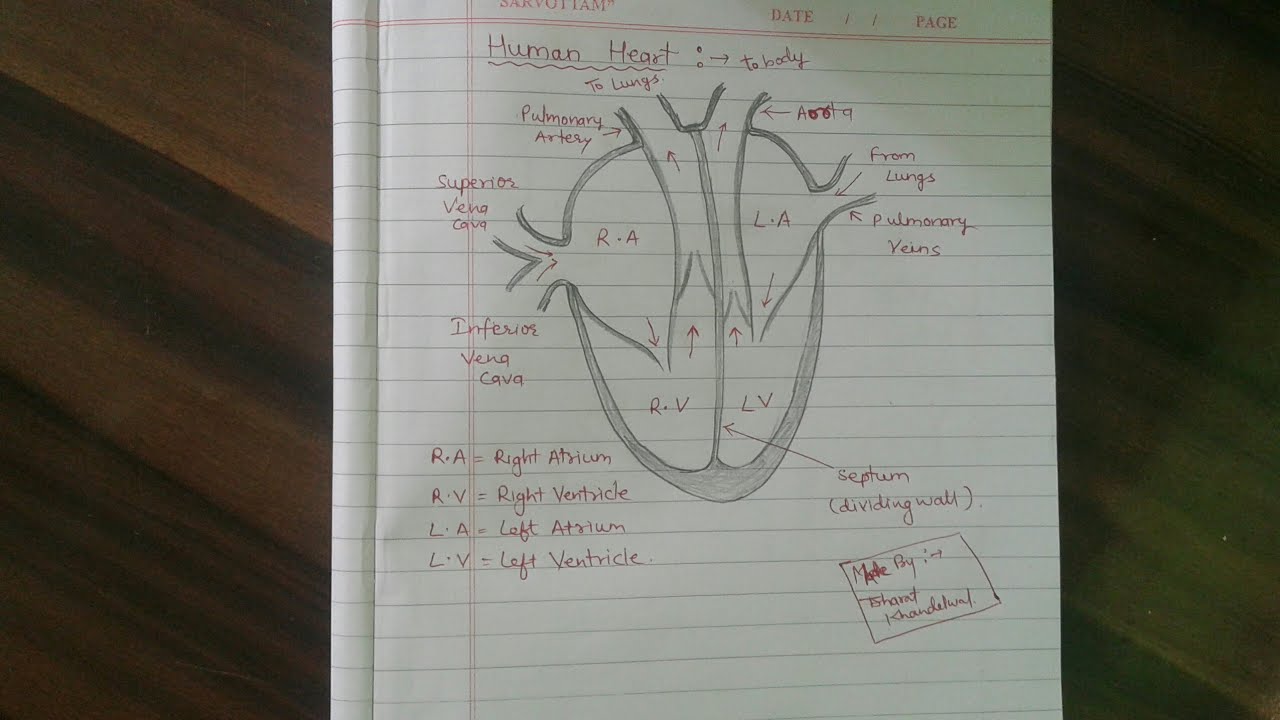 SARVOTTAM"
DATE / / PAGE
Human Heart :→ to body
To Lungs.
Pulmonary
Artery
Aorta
From
Lungs
Superior
Vena
Cava
R.A
L.A
Pulmonary
Veins
Inferior
Vena
Cava
R.V
LV
R.A = Right Atrium
R.V = Right Ventricle
L.A = Left Atrium
L.V = Left Ventricle.
Septum
(dividing wall).
Made By :→
Bharat
Khandelwal.